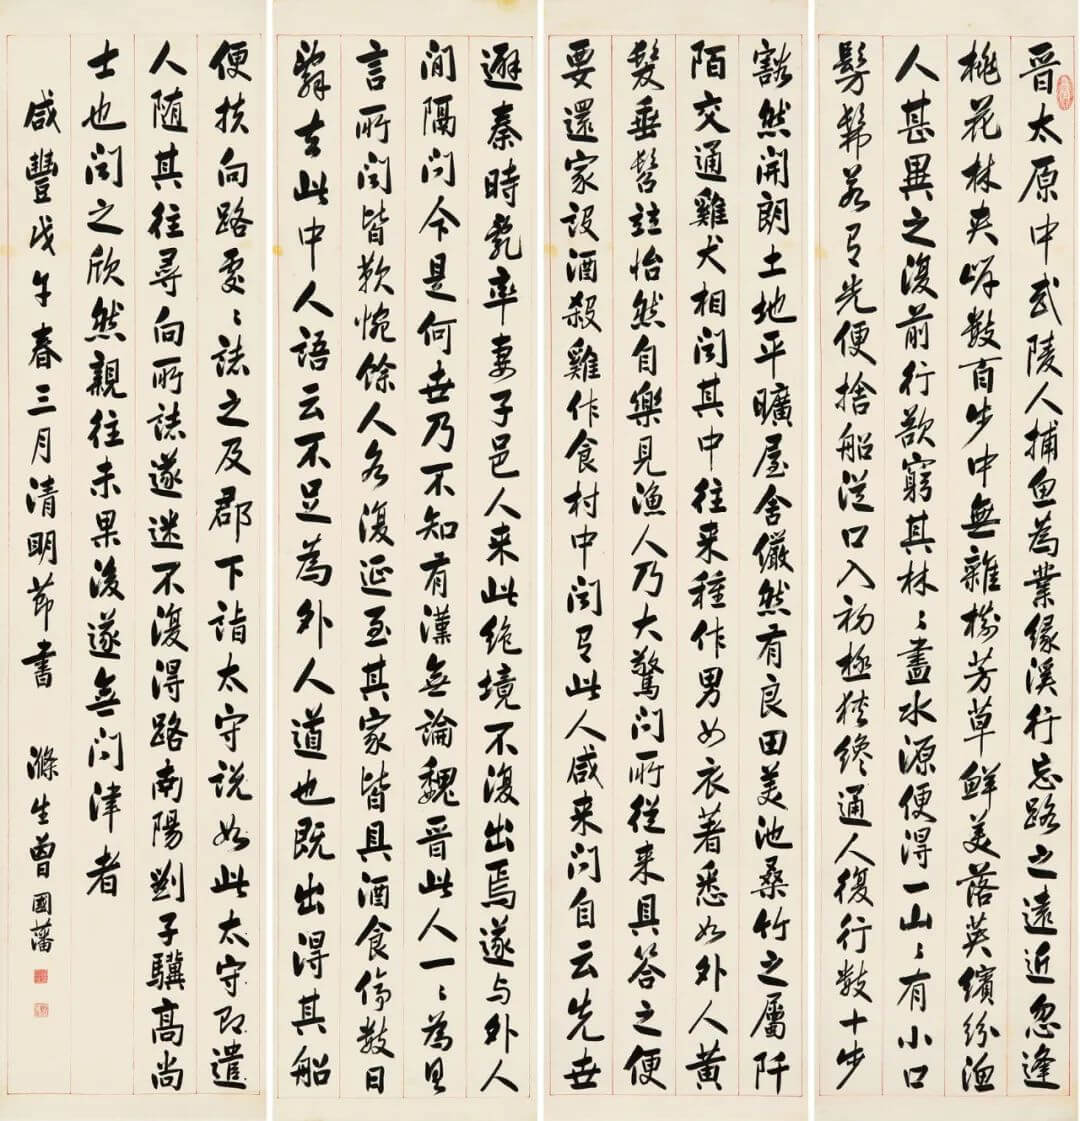 晉太原中武陵人捕魚為業緣溪行忘路之遠近忽逢
桃花林夾岸數百步中無雜樹芳草鮮美落英繽紛漁
人甚異之復前行欲窮其林〻盡水源便得一山〻有小口
髣髴若有光便捨船從口入初極狹纔通人復行數十步
豁然開朗土地平曠屋舍儼然有良田美池桑竹之屬阡
陌交通雞犬相聞其中往来種作男女衣著悉如外人黃
髮垂髫並怡然自樂見漁人乃大驚問所從来具答之便
要還家設酒殺雞作食村中聞有此人咸来問自云先世
避秦時亂率妻子邑人来此絶境不復出焉遂与外人
間隔問今是何世乃不知有漢無論魏晉此人一〻為具
言所聞皆歎惋餘人各復延至其家皆具酒食停數日
辭去此中人語云不足為外人道也既出得其船
便扶向路處〻誌之及郡下詣太守説如此太守即遣
人随其往尋向所誌遂迷不復得路南陽劉子驥高尚
士也聞之欣然親往未果後遂無問津者
咸豐戊午春三月清明節書 滌生曾國藩